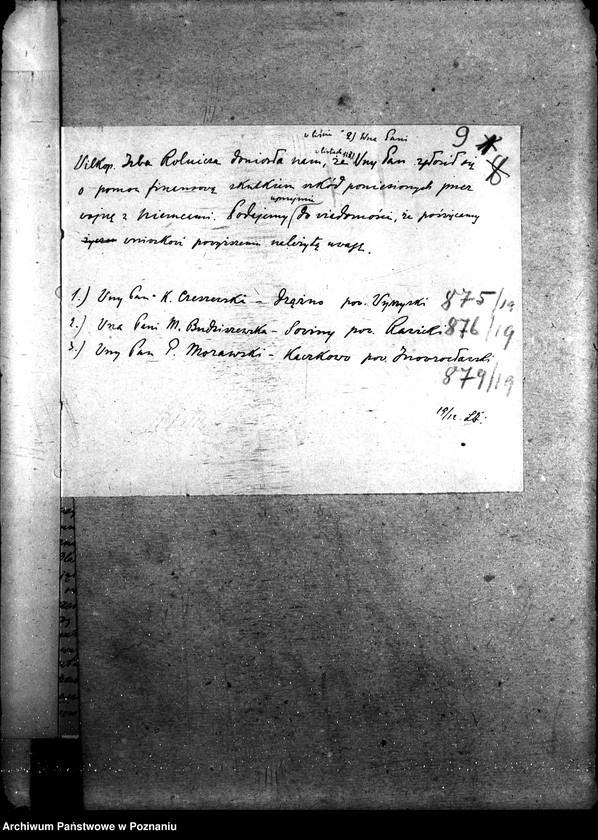 2) Wna Pani
9
Wlkop. Izba Rolnicza doniosła nam, że Wny Pan zgłosił się
o pomoc finansową skutkiem szkód poniesionych przez
wojnę z Niemcami. Podajemy uprzejmie do wiadomości, że poświęcimy
wnioskowi powyższemu należytą uwagę.
1.) Wny Pan K. Czeszewski – Drążno pow. Wyrzyski 875/19
2.) Wna Pani M. Budziszewska – Sowiny pow. Rawicki 876/19
3.) Wny Pan P. Morawski – Kaczkowo pow. Inowrocławski
879/19
19/12.
Archiwum Państwowe w Poznaniu